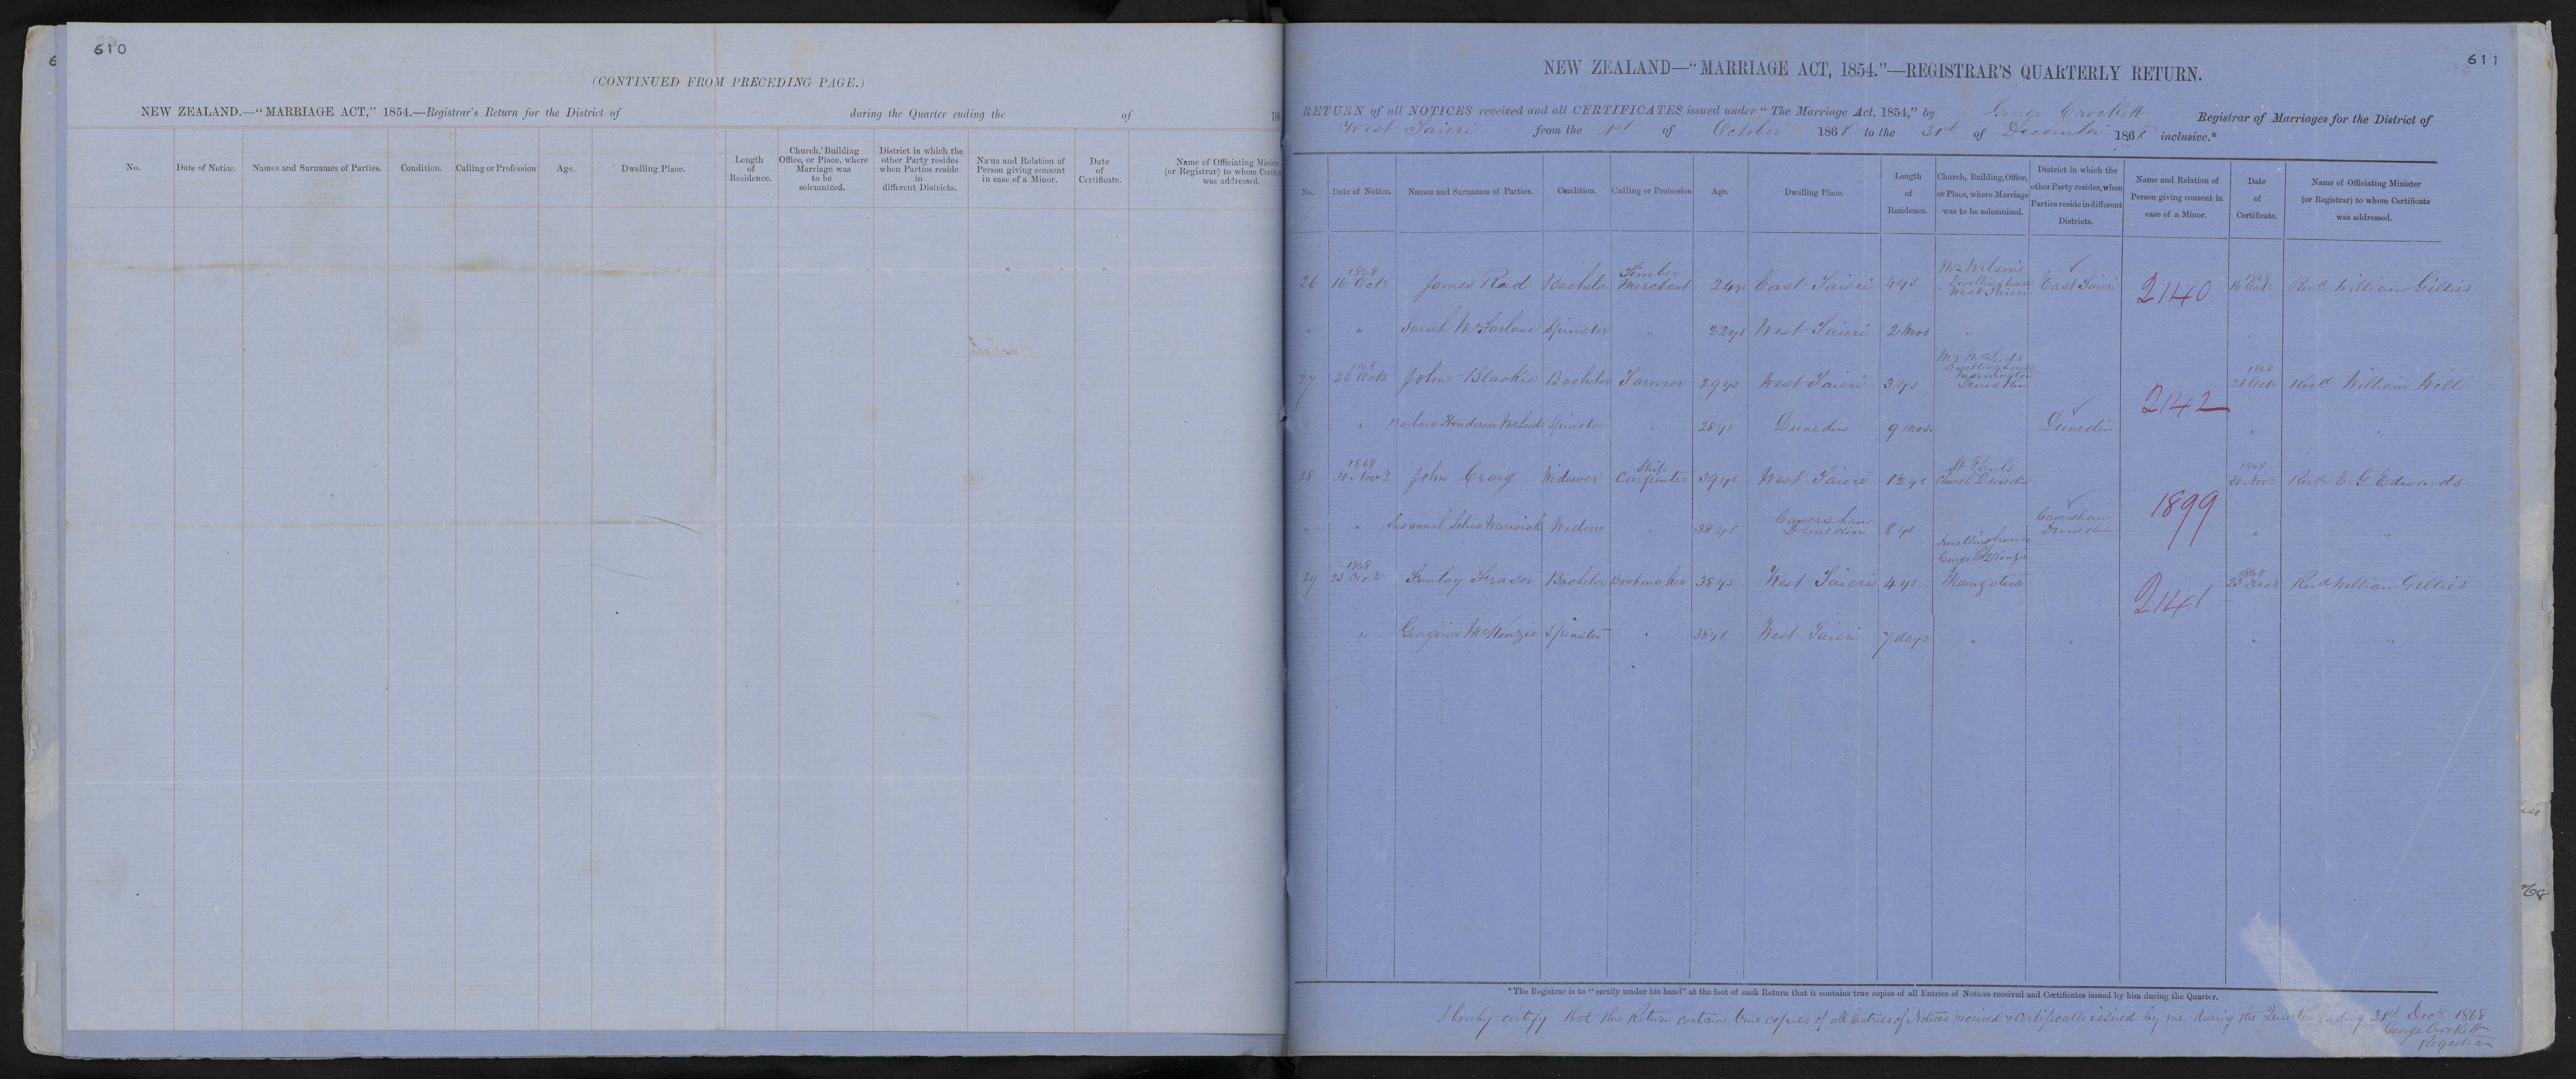 610
(CONTINUED FROM PRECEDING PAGE.)
NEW ZEALAND.—"MARRIAGE ACT," 1854.—Registrar's Return for the District of during the Quarter ending the of 18
No. Date of Notice. Names and Surnames of Parties. Condition. Calling or Profession Age. Dwelling Place. Length of Residence. Church, Building Office, or Place, where Marriage was to be solemnized. District in which the other Party resides when Parties reside in different Districts. Name and Relation of Person giving consent in case of a Minor. Date of Certificate. Name of Officiating (or Registrar) to whom was addressed.
611
NEW ZEALAND—"MARRIAGE ACT, 1854."—REGISTRAR'S QUARTERLY RETURN.
RETURN of all NOTICES received and all CERTIFICATES issued under "The Marriage Act, 1854," by George Crockett Registrar of Marriages for the District of
West Taieri from the 1st of October 1868 to the 31st of December 1868 inclusive.*
No. Date of Notice. Names and Surnames of Parties. Condition. Calling or Profession Age. Dwelling Place. Length of Residence. Church, Building, Office, or Place, where Marriage was to be solemnized. District in which the other Party resides, when Parties reside in different Districts. Name and Relation of Person giving consent in case of a Minor. Date of Certificate. Name of Officiating Minister (or Registrar) to whom Certificate was addressed.
26 1868 16 Octr James Reid Bachelor Timber Merchant 24 ys East Taieri 4 ys Mr Wilson's Dwellinghouse West Taieri East Taieri 2140 1868 16 Octr Revd William Gillies
" " Sarah McFarlane Spinster " 22 ys West Taieri 2 Mos "
27 1868 26 Octr John Blackie Bachelor Farmer 29 ys West Taieri 3 ys Mr McLeod's Dwellinghouse Mornington Dunedin 1868 26 Octr Revd William Will
2142
" " Barbara Henderson McLeod Spinster " 28 ys Dunedin 9 Mos. Dunedin " "
28 1868 30 Novr John Craig Widower Ship Carpenter 39 ys West Taieri 1½ ys St Pauls Church Dunedin 1868 30 Novr Revd E. G. Edwards
1899
" " Susannah Selina Warwick Widow " 38 ys Caversham Dunedin 8 ys Caversham Dunedin " "
29 1868 23 Decr Finlay Fraser Bachelor Bootmaker 38 ys West Taieri 4 ys Dwellinghouse George McKenzie Maungatua 1868 23 Decr Revd William Gillies
2141
" Georgina McKenzie Spinster " 38 ys West Taieri 7 days " " " "
*The Registrar is to "certify under his hand" at the foot of each Return that it contains true copies of all Entries of Notices received and Certificates issued by him during the Quarter.
I hereby certify that this Return contains true copies of all Entries of Notices received & Certificates issued by me during the Quarter ending 31st Decr 1868
George Crockett
Registrar